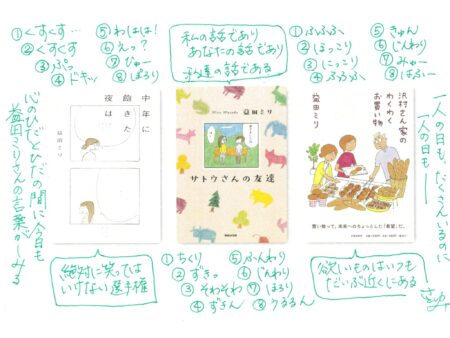 ①くすくす…
②くすくす
③ぷっ
④ドキッ
⑤わはは!
⑥えっ?
⑦ぴゅー
⑧ぽろり
私の話であり
あなたの話であり
私達の話である
①ふふふ
②ほっこり
③にっこり
④ふふふ
⑤きゅん
⑥じんわり
⑦みゅー
心のひだとひだの間に今日も
益田ミリさんの言葉がしみる
中年に
飽きた
夜は
益田ミリ
Miri Masuda
益田ミリ
サトウさんの友達
沢村さん家の
わくわく
お買い物
益田ミリ
買い物って、未来へのちょっとした「希望」だ。
一人の日も、たくさんいるのに
一人の日も
絶対に笑っては
いけない選手権
①ちくり
②ずきっ
③そわそわ
④ずきん
⑤ふんわり
⑥じんわり
⑦ほろり
⑧うるるん
欲しいものはいつも
だいぶ近くにある